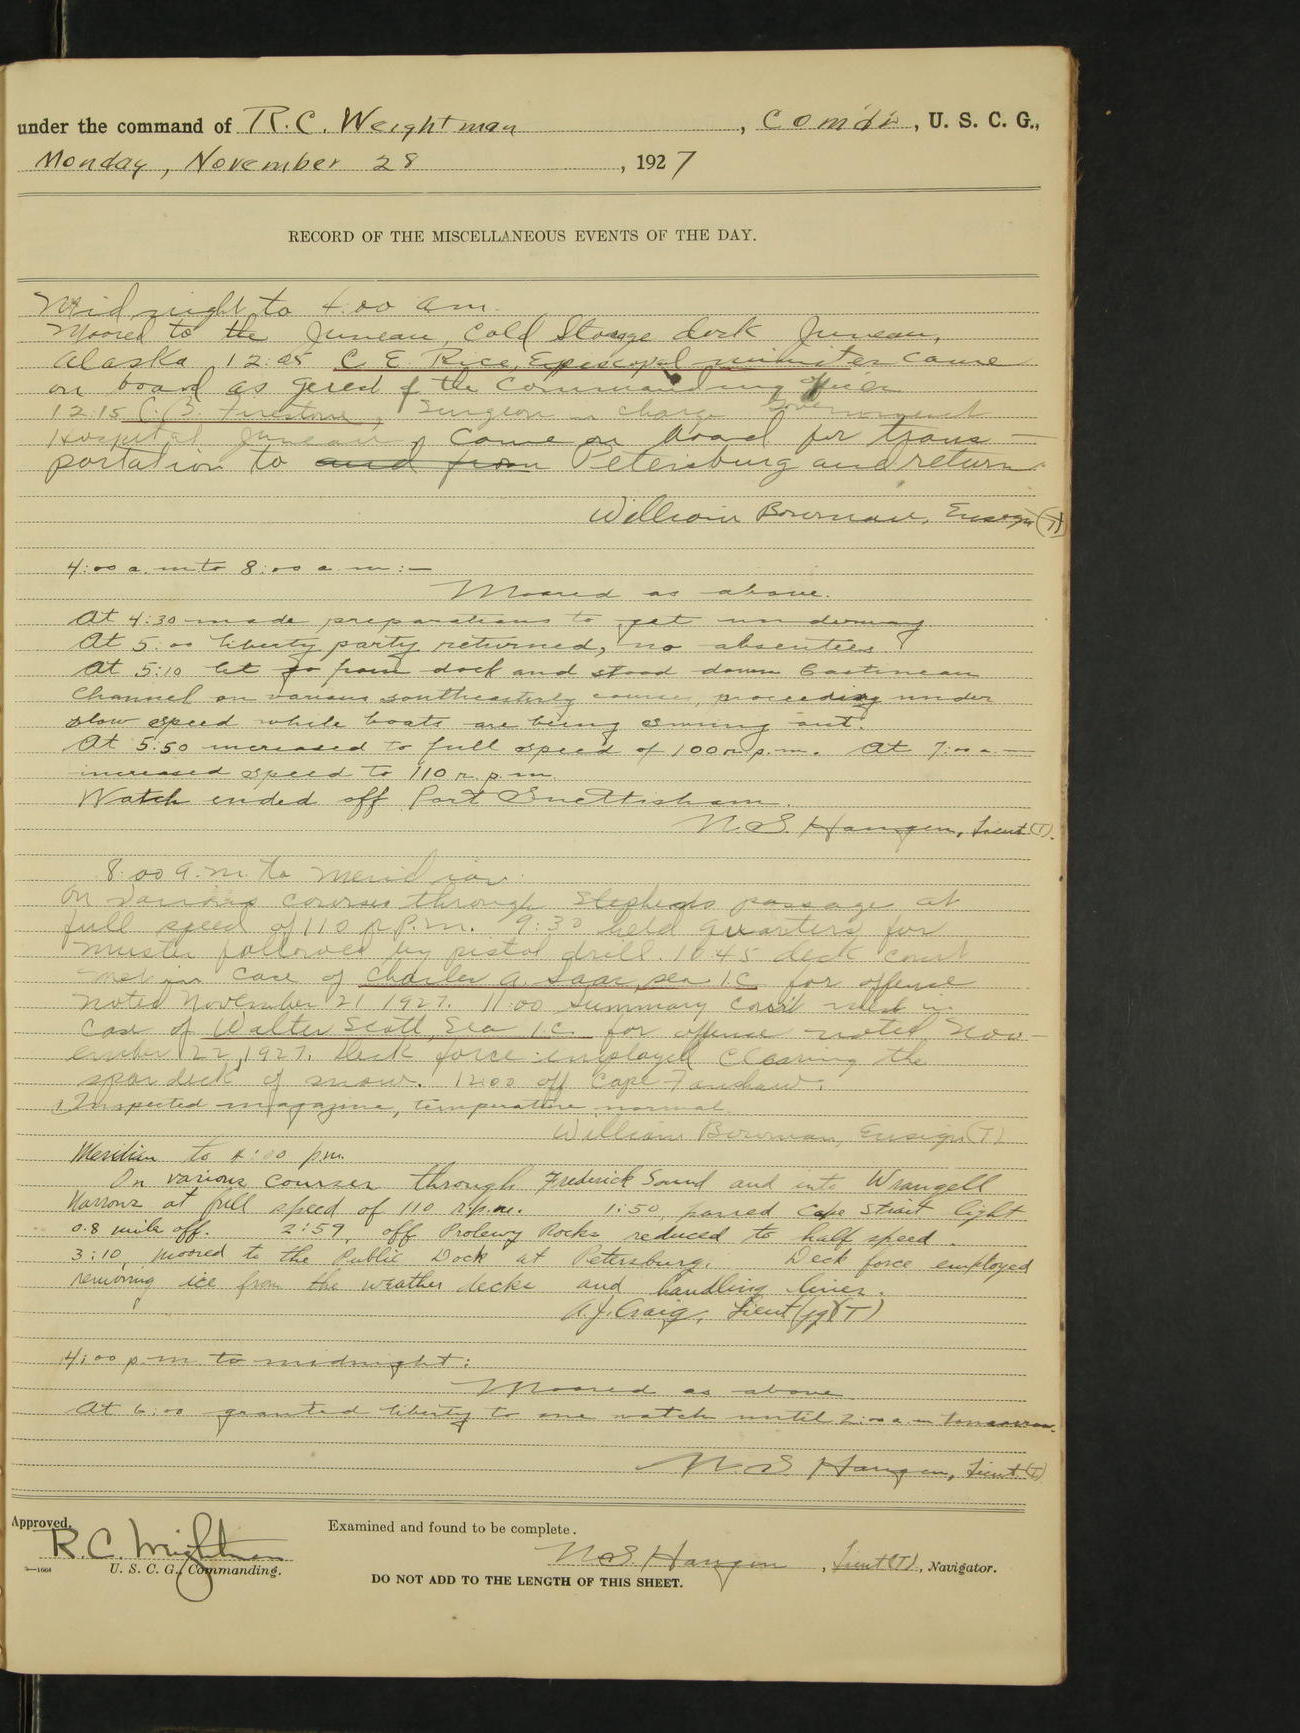 under the command of R. C. Weightman, Comdr, U. S. C. G.,
Monday, November 28, 1927
RECORD OF THE MISCELLANEOUS EVENTS OF THE DAY.
Mid night to 4:00 am.
Moored to the Juneau, Cold Storage dock Juneau,
Alaska 12:05 C E Rice, Episcopal minister came
on board as guest of the Commanding officer
12:15 C. B. Firestone, Surgeon in charge Government
Hospital Juneau, came on board for trans-
portation to and from Petersburg and return
William Bowman, Ensign (T)
4:00 a.m to 8:00 a.m:-
Moored as above.
At 4:30 made preparations to get underway.
At 5:00 liberty party returned, no absentees.
At 5:10 let go from dock and stood down Gastineau
Channel on various southeasterly courses, proceeding under
slow speed while boats are being swung out.
At 5:50 increased to full speed of 100 r.p.m. At 7:00 a.-
increased speed to 110 r.p.m.
Watch ended off Port Snettisham.
N. S. Haugen, Lieut (T).
8:00 a.m. to meridian.
On various courses through Stephens passage at
full speed of 110 R.P.M. 9:30 held quarters for
muster followed by pistol drill. 10 45 deck court
met in case of Charles A. Saar, sea 1c for offense
noted November 21 1927. 11:00 Summary Court met in
case of Walter Scott, Sea 1c for offense noted Nov-
ember 22, 1927. Deck force employed clearing the
spar deck of snow. 12:00 off Cape Fanshaw.
Inspected magazine, temperature normal.
William Bowman, Ensign (T)
Meridian to 4:00 p.m.
On various courses through Frederick Sound and into Wrangell
Narrows at full speed of 110 r.p.m. 1:50, passed Cape Strait light
0.8 mile off. 2:59, off Prolewy Rocks reduced to half speed.
3:10, moored to the Public Dock at Petersburg. Deck force employed
removing ice from the weather decks and handling lines.
A. J. Craig, Lieut (jg)(T)
4:00 p.m to midnight:
Moored as above
At 6:00 granted liberty to one watch until 2:00 a.m tomorrow.
N. S. Haugen, Lieut (T)
Approved,
R. C. Weightman
U. S. C. G., Commanding.
Examined and found to be complete.
N. S. Haugen, Lieut (T), Navigator.
DO NOT ADD TO THE LENGTH OF THIS SHEET.